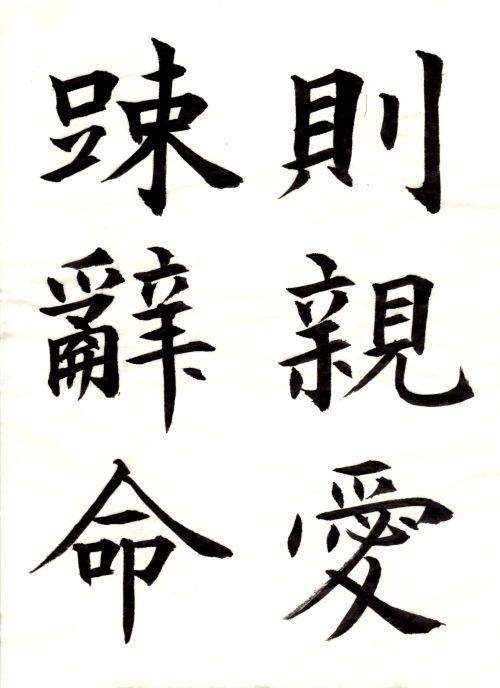 則親愛
踈辭命